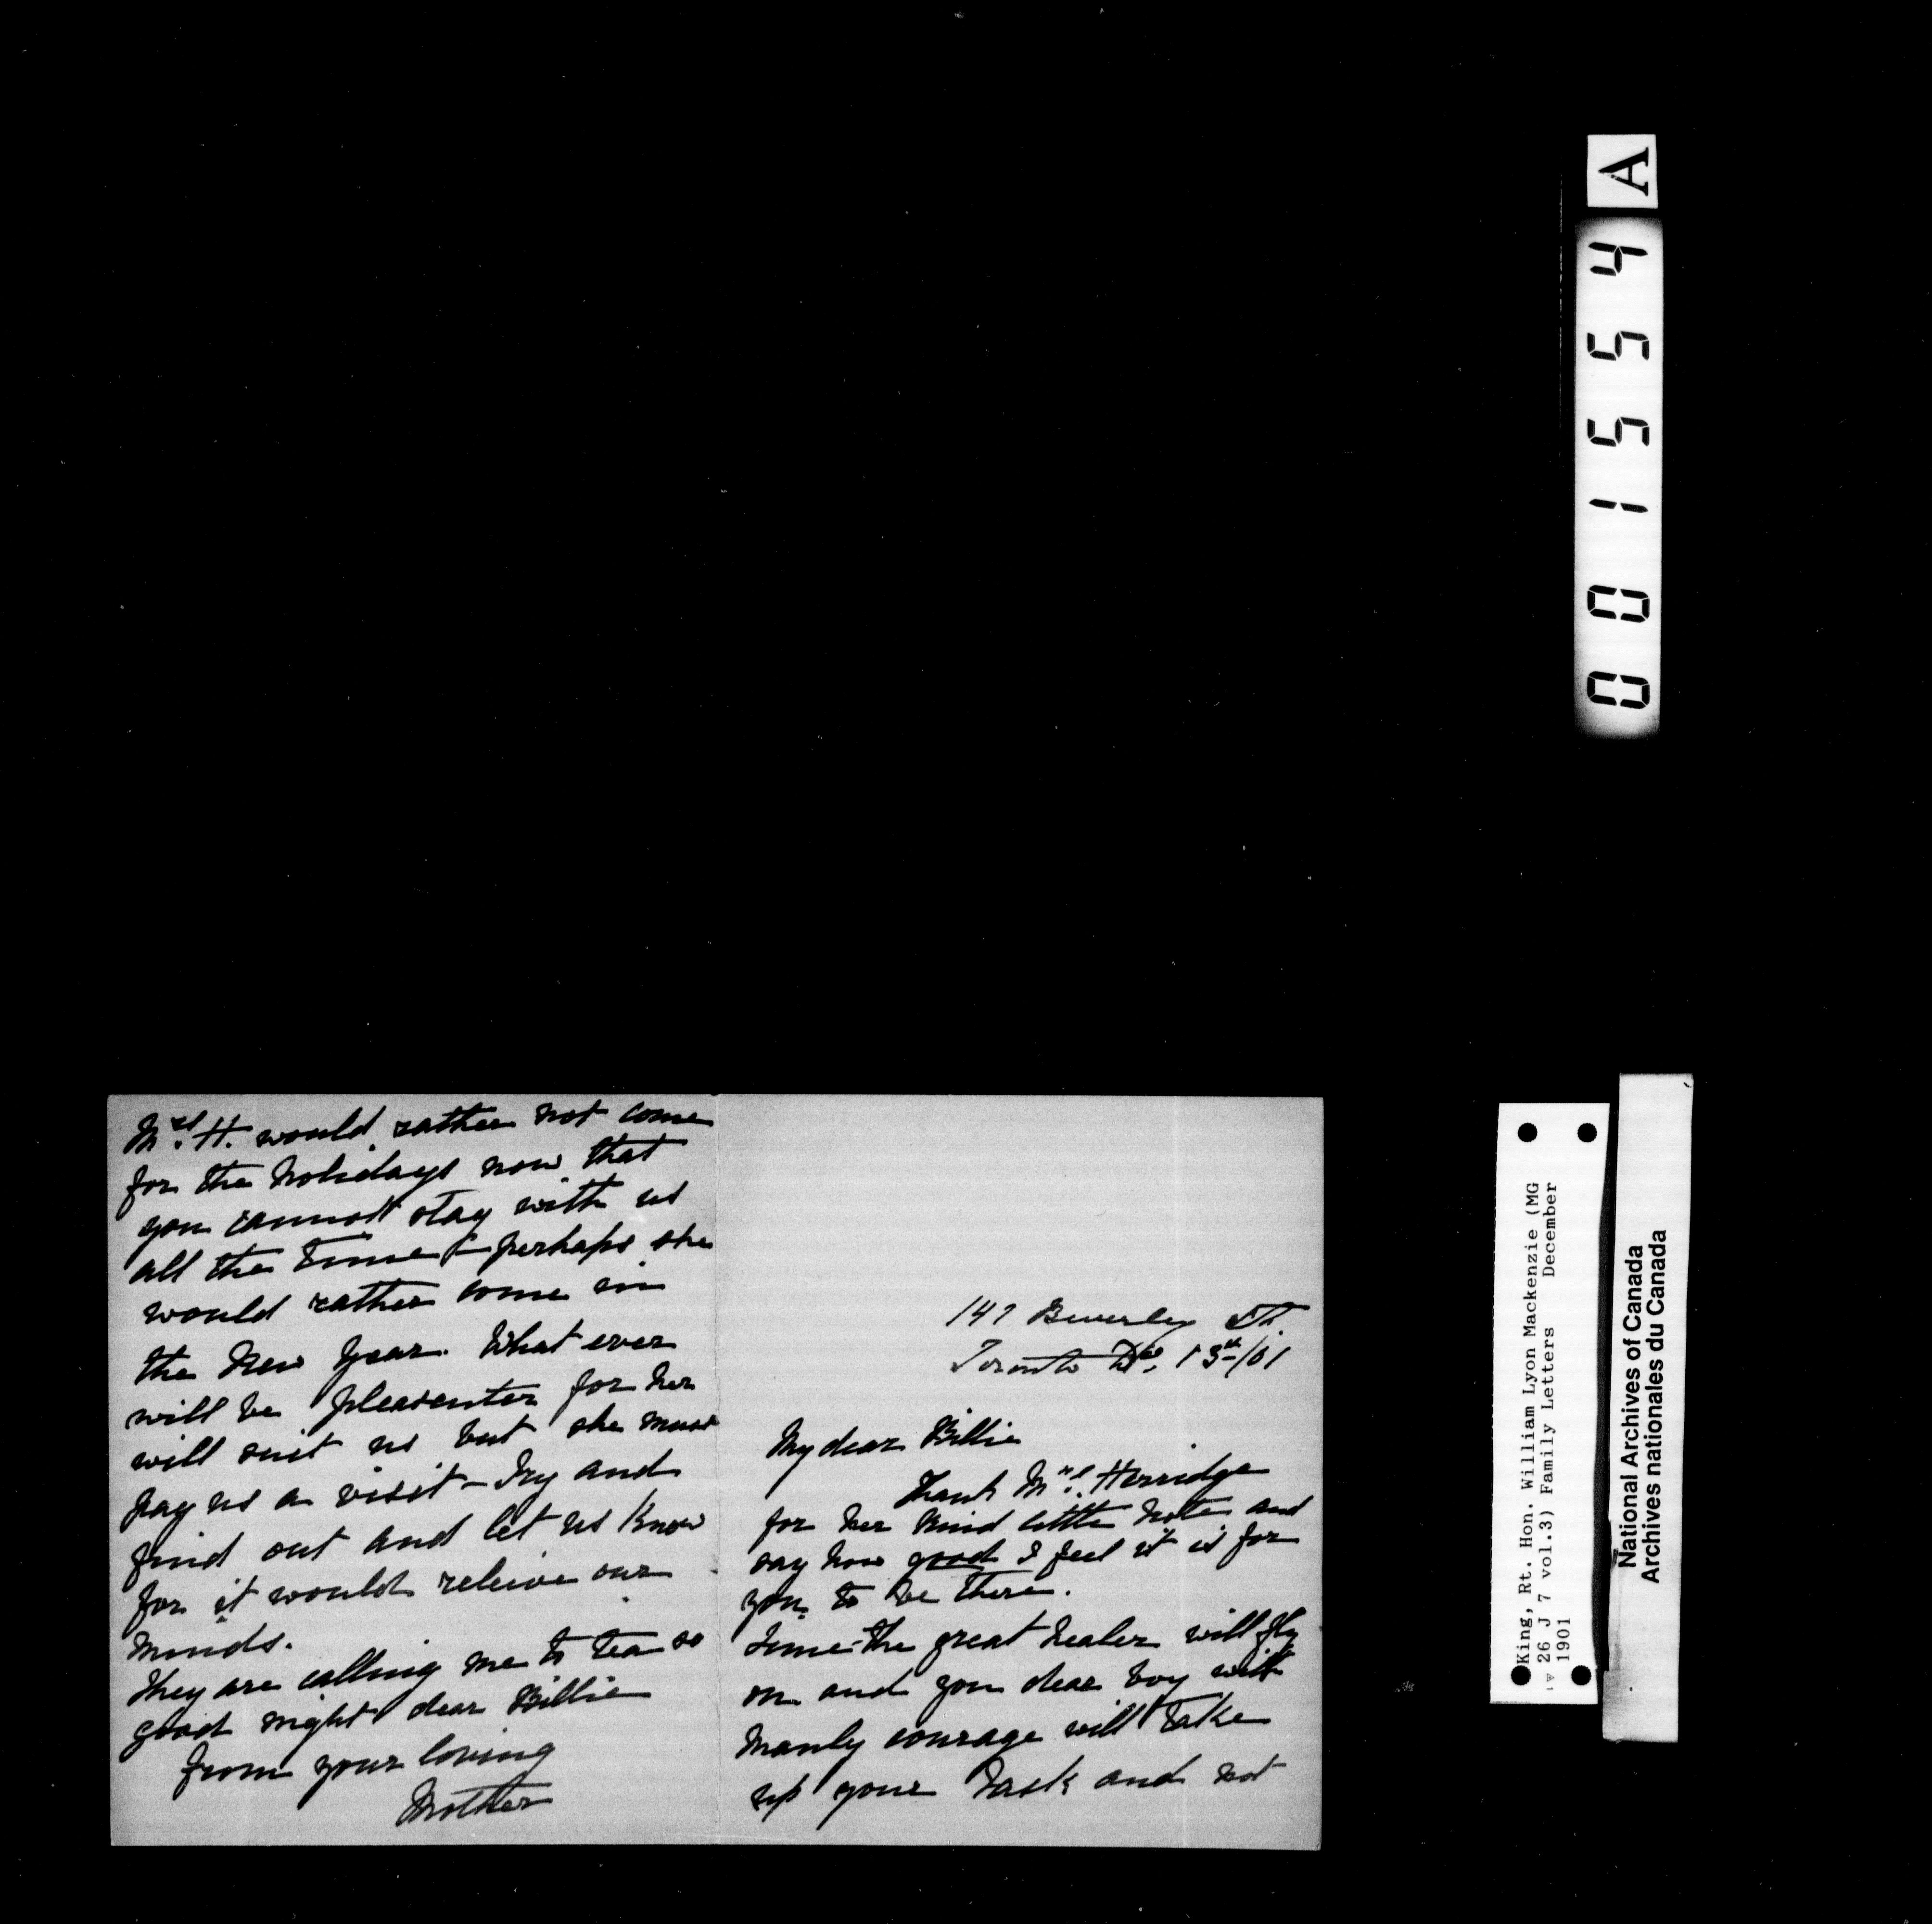 147 Beverley St.
Toronto Dec. 13th/01
My dear Billie
Thank Mrs. Herridge
for her kind little note and
say how good I feel it is for
you to be there.
Time the great healer will fly
on and you dear boy with
manly courage will take
up your task and not
Mrs. H. would rather not come
for the holidays now that
you cannot stay with us
all the time & perhaps she
would rather come in
the New Year. What ever
will be pleasenter for her
will suit us but she must
pay us a visit - Try and
find out and let us know
for it would releive our
minds.
They are calling me to tea so
good night dear Billie
from your loving
Mother
A
001554
King, Rt. Hon. William Lyon Mackenzie (MG
26 J 7 vol.3) Family Letters December
1901
National Archives of Canada
Archives nationales du Canada